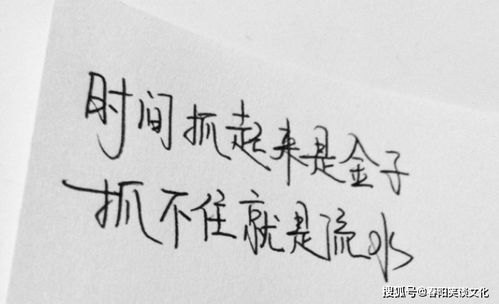 时间抓起来是金子
抓不住就是流水
搜狐号@春阳笑谈文化